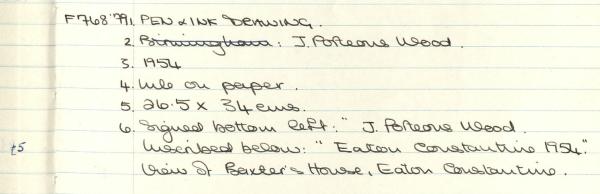 F768'79 1. PEN & INK DRAWING.
2. Birmingham: J. Porteous Wood.
3. 1954
4. Ink on paper.
5. 26.5 x 34 cms.
6. Signed bottom left: " J. Porteous Wood.
t5 Inscribed below: " Eaton Constantine 1954."
View of Baxter's House, Eaton Constantine.